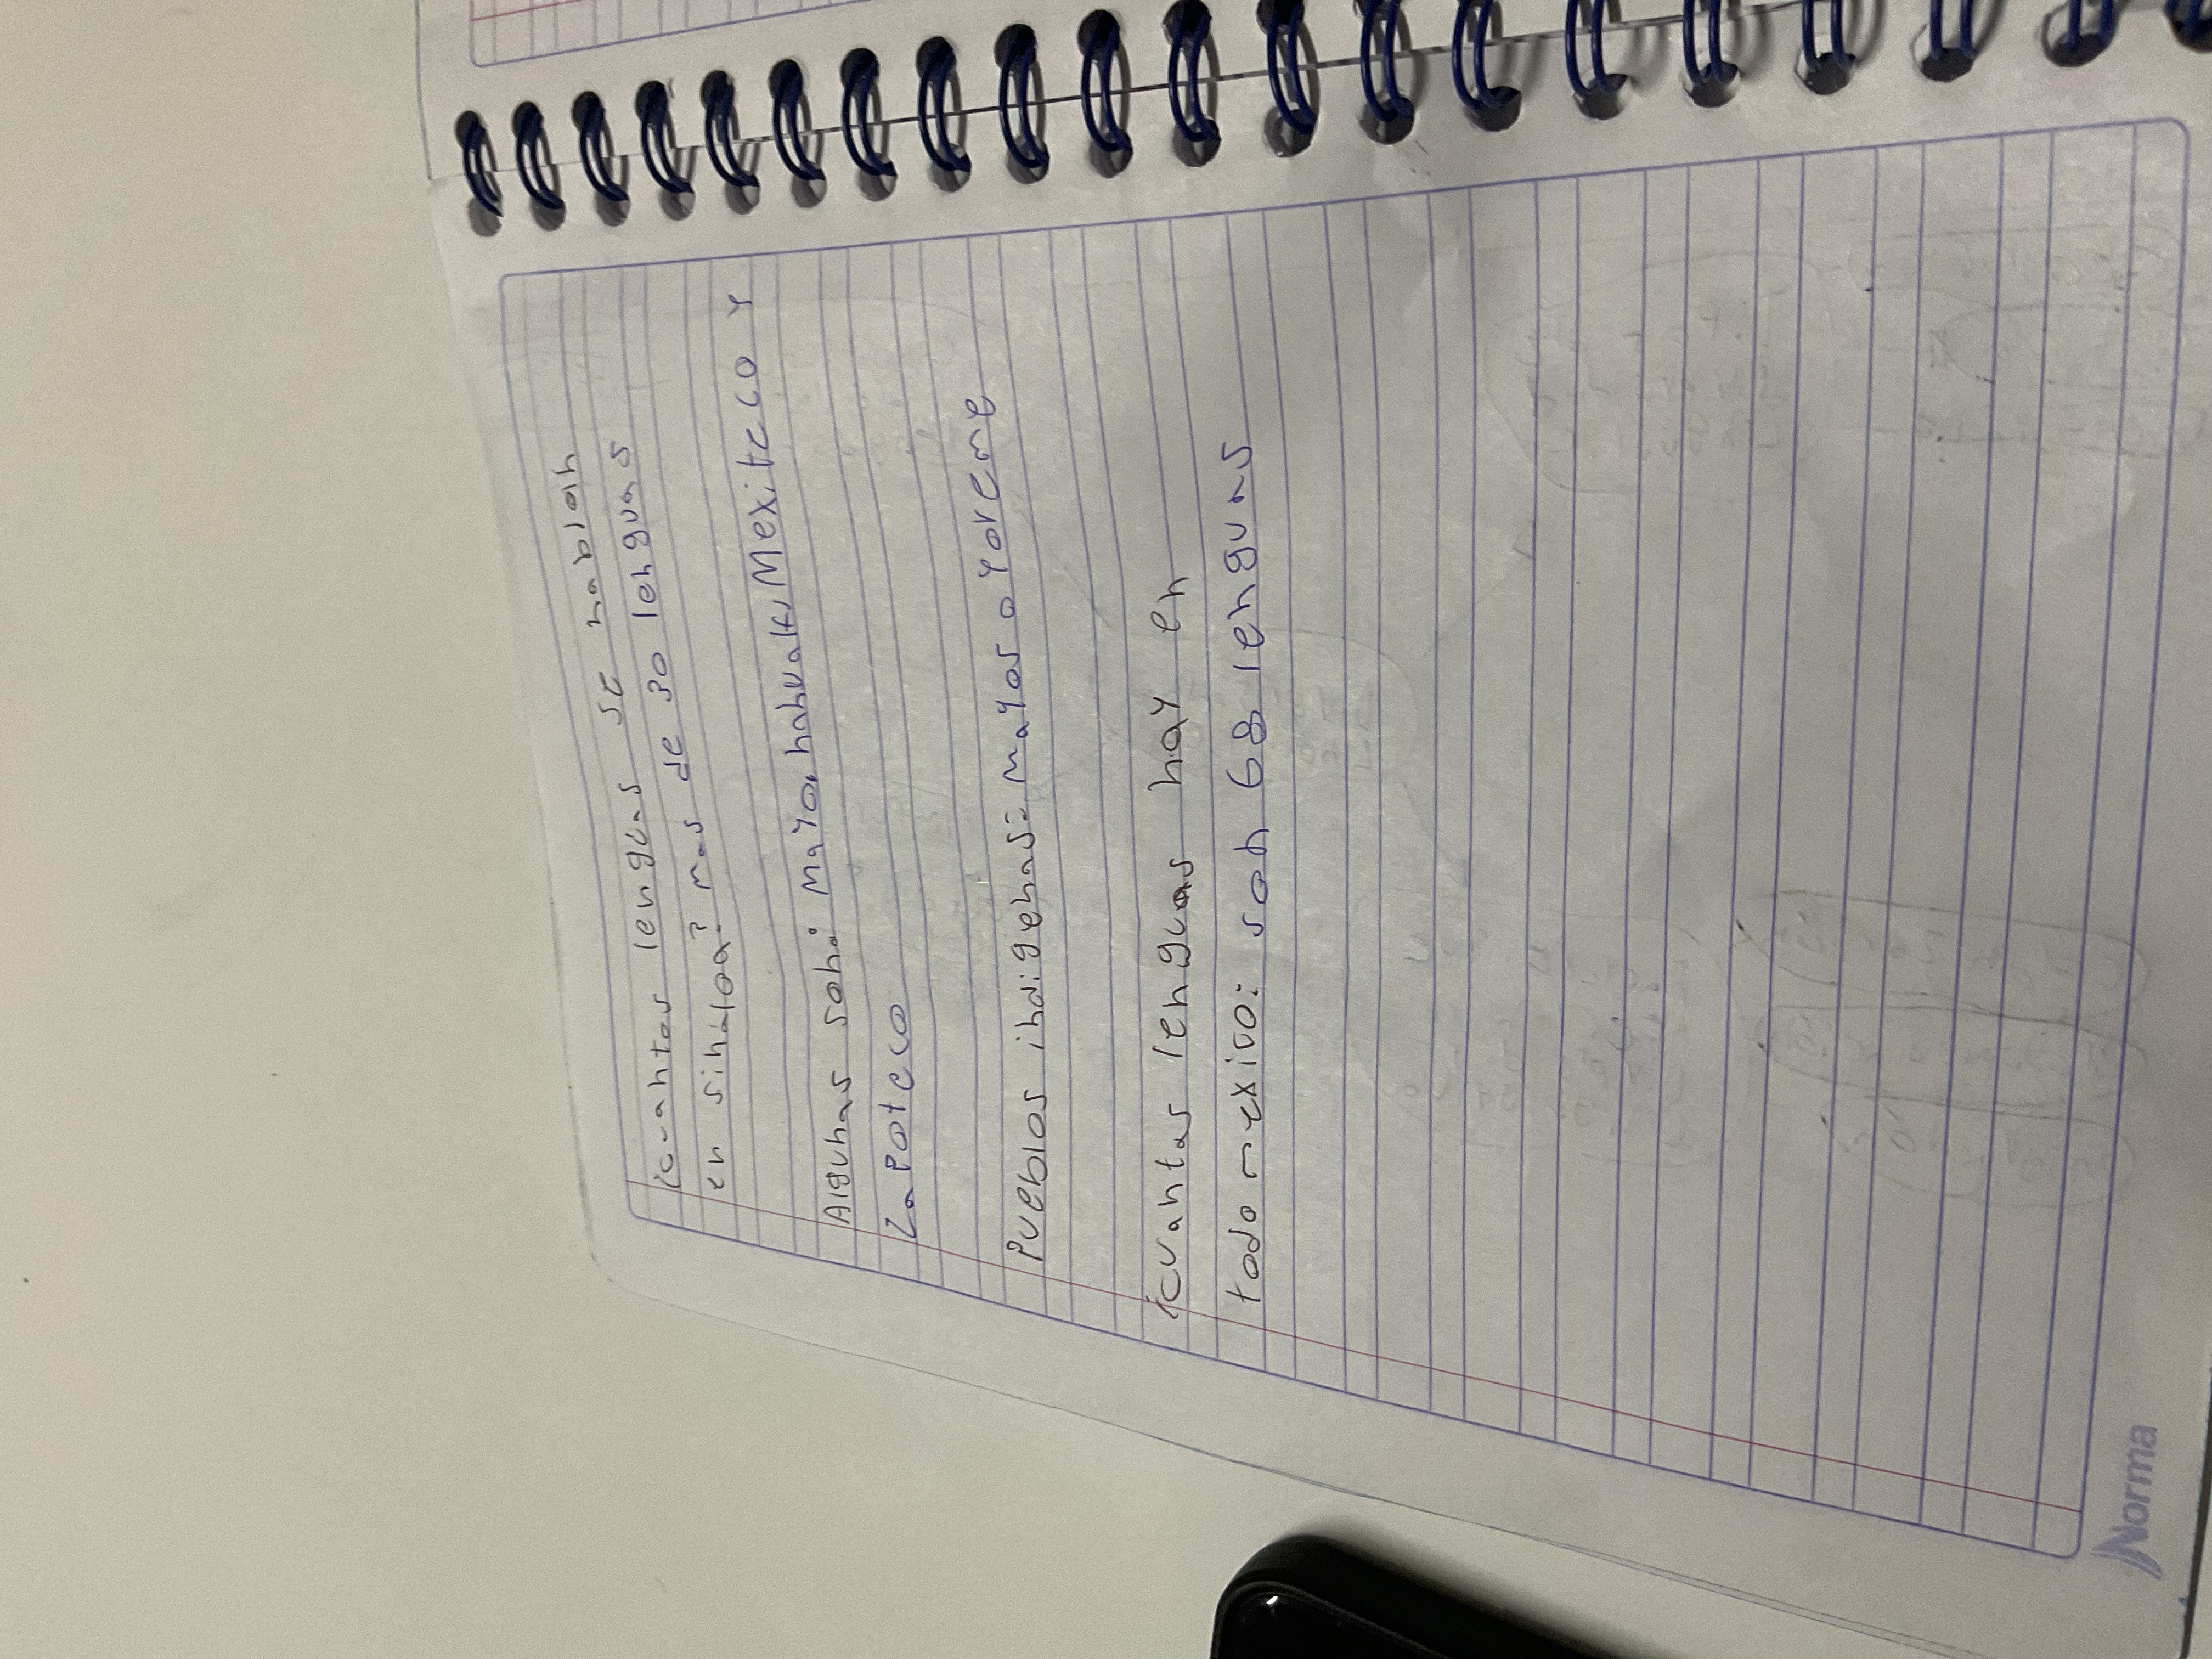 ¿cuantas lenguas se hablan
en sinaloa? mas de 30 lenguas
Algunas son: Mayo, nahualt, Mexitcco y
Zapotcco
Pueblos indigenas: mayos o yoreme
¿cuantas lenguas hay en
todo mexico: son 68 lenguas
Norma